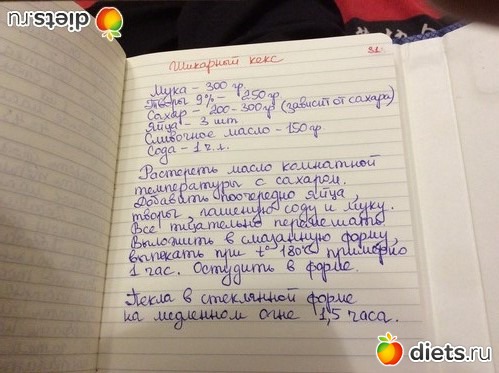 diets.ru
Шикарный кекс
31
Мука - 300 гр
Творог 9% - 250 гр
Сахар - 200-300 гр (зависит от сахара)
Яйца - 3 шт
Сливочное масло - 150 гр
Сода - 1 ч.л.
Растереть масло комнатной
температуры с сахаром.
Добавить поочередно яйца,
творог, гашеную соду и муку.
Все тщательно перемешать
Выложить в смазанную форму,
выпекать при t° 180°С примерно
1 час. Остудить в форме.
Пекла в стеклянной форме
на медленном огне 1,5 часа.
diets.ru